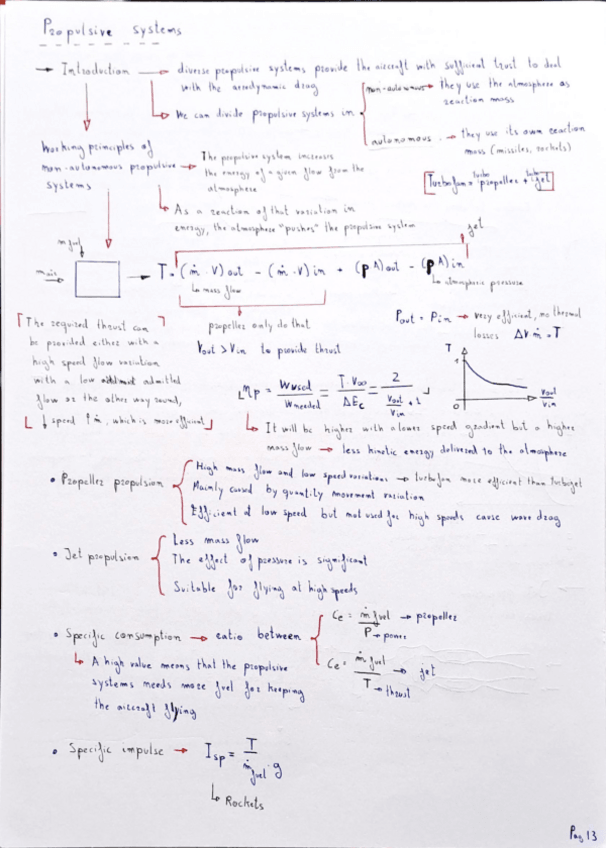 Propulsive systems
→ Introduction → diverse propulsive systems provide the aircraft with sufficient trust to deal
with the aerodynamic drag
We can divide propulsive systems in
non-autonomous → they use the atmosphere as
reaction mass
autonomous → they use its own reaction
mass (missiles, rockets)
Working principles of
non-autonomous propulsive
systems
→ The propulsive system increases
the energy of a given flow from the
atmosphere
Turbofan = propeller + jet
As a reaction of that variation in
energy, the atmosphere "pushes" the propulsive system
jet
ṁ fuel
ṁ air
→ T = (ṁ · V) out − (ṁ · V) in + (P A) out − (P A) in
↳ mass flow
↳ atmospheric pressure
propeller only do that
Vout > Vin to provide thrust
Pout = Pin → very efficient, no thermal
losses ΔV·ṁ = T
The required thrust can
be provided either with a
high speed flow variation
with a low admitted
flow or the other way round,
↓ speed ↑ ṁ, which is more efficient
ηp = Wused / Wneeded = T · V∞ / ΔEc = 2 / (Vout/Vin + 1)
T
1
0
Vout / Vin
↳ It will be higher with a lower speed gradient but a higher
mass flow → less kinetic energy delivered to the atmosphere
• Propeller propulsion
High mass flow and low speed variations → turbofan more efficient than turbojet
Mainly caused by quantity movement variation
Efficient at low speed but not used for high speeds cause wave drag
• Jet propulsion
Less mass flow
The effect of pressure is significant
Suitable for flying at high speeds
• Specific consumption → ratio between
Ce = ṁ fuel / P → propeller
→ power
Ce = ṁ fuel / T → jet
→ thrust
↳ A high value means that the propulsive
systems needs more fuel for keeping
the aircraft flying
• Specific impulse → Isp = T / ṁfuel · g
↳ Rockets
Pag 13